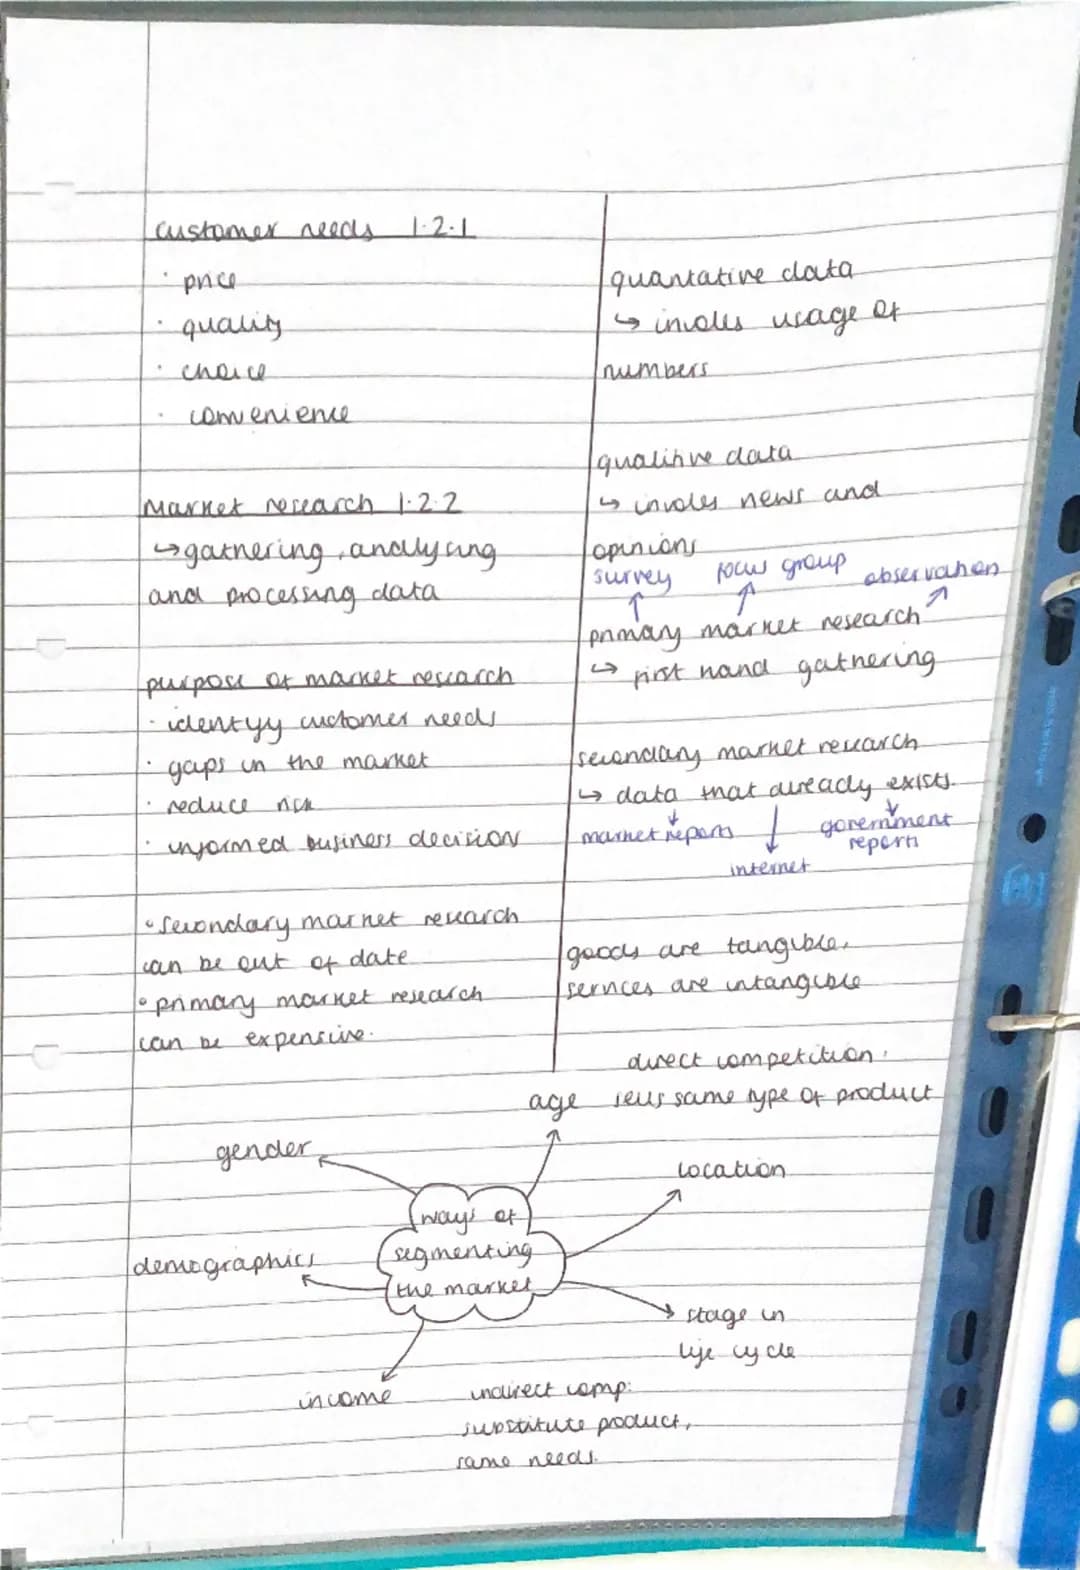 customer needs 1.2.1
· price
· quality
· choice
· convenience
Market research 1.2.2
↳ gathering, analysing
and processing data
purpose of market research
· identify customer needs
· gaps in the market
· reduce risk
· informed business decision
• secondary market research
can be out of date
• primary market research
can be expensive.
quantative data
↳ involes usage of
numbers
qualitive data
↳ involes news and
opinions
survey focus group observation
primary market research
↳ first hand gathering
secondary market research
↳ data that already exists.
market reports government
reports
internet
goods are tangible,
services are intangible
direct competition:
sells same type of product
age
gender
location
ways of
segmenting
the market
demographics
stage in
life cycle
income
indirect comp:
substitute product,
same needs.